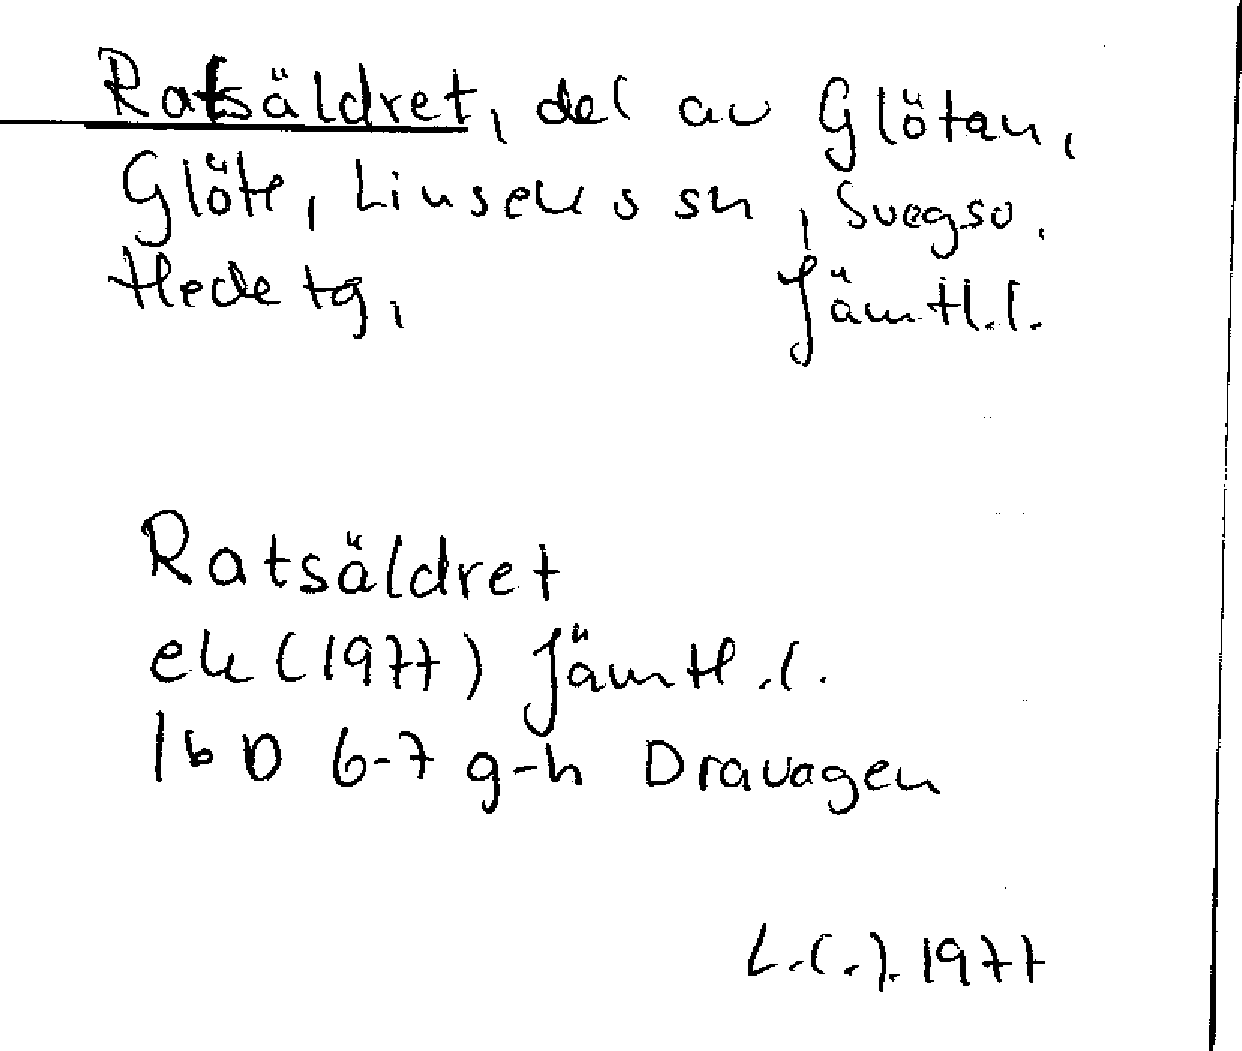 Ratsäldret, del av Glötan,
Glöte, Linsells sn, Svegs o.
Hede tg, Jämtl.l.
Ratsäldret
ek (1977) Jämtl.l.
16 D 6-7 g-h Dravagen
1977